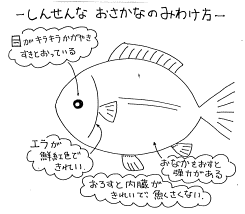 －しんせんな おさかなのみわけ方－
目がキラキラかがやき
すきとおっている
エラが
鮮紅色で
きれい
おなかをおすと
弾力がある
おろすと内臓が
きれいで、魚くさくない。